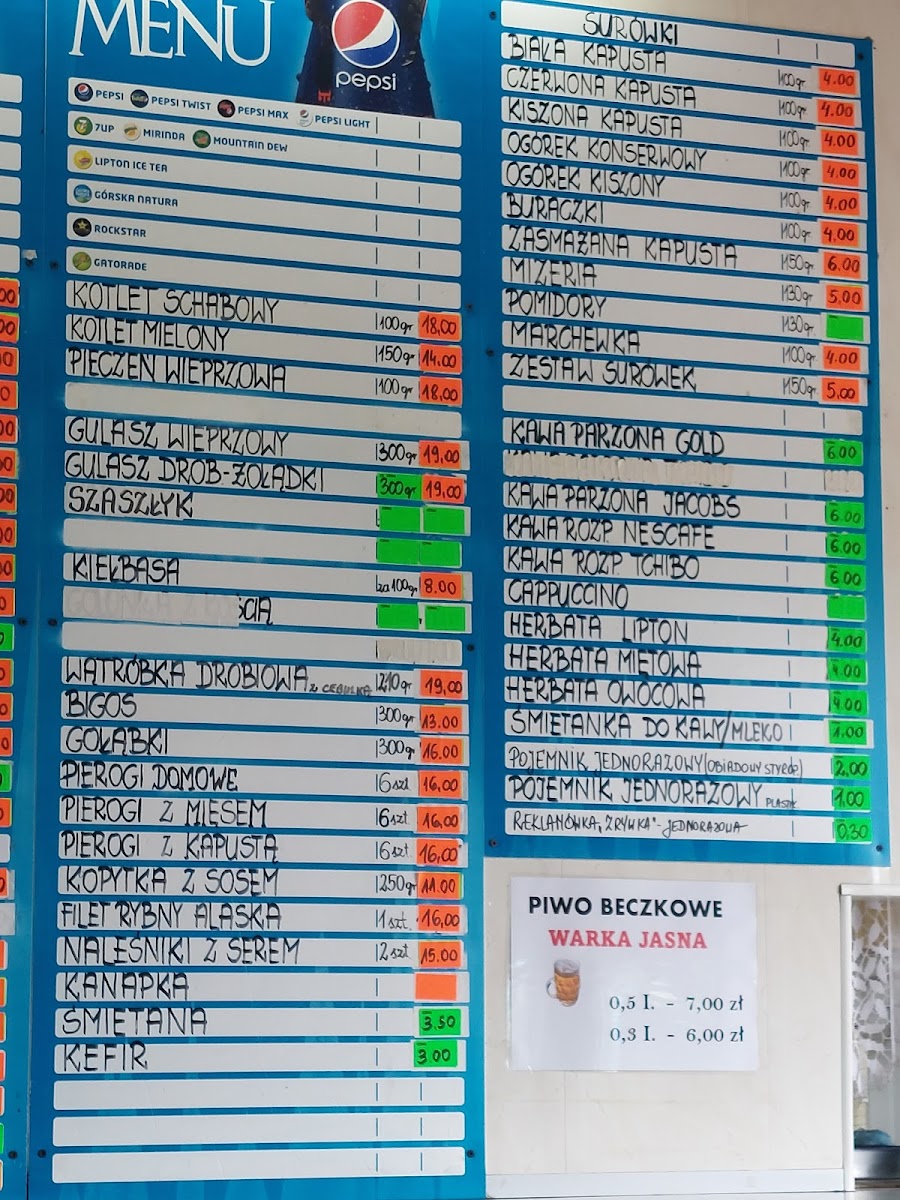 MENU
pepsi
PEPSI PEPSI TWIST PEPSI MAX PEPSI LIGHT
7UP MIRINDA MOUNTAIN DEW
LIPTON ICE TEA
GÓRSKA NATURA
ROCKSTAR
GATORADE
KOTLET SCHABOWY 100gr 18,00
KOTLET MIELONY 150gr 14.00
PIECZEŃ WIEPRZOWA 100gr 18,00
GULASZ WIEPRZOWY 300gr 19,00
GULASZ DROB-ŻOŁĄDKI 300gr 19,00
SZASZŁYK
KIEŁBASA za 100gr 8.00
GOLONKA Z KOŚCIĄ
WĄTRÓBKA DROBIOWA Z CEBULKĄ 210gr 19,00
BIGOS 300gr 13.00
GOŁĄBKI 300gr 16.00
PIEROGI DOMOWE 6szt 16,00
PIEROGI Z MIĘSEM 6szt. 16,00
PIEROGI Z KAPUSTĄ 6szt. 16,00
KOPYTKA Z SOSEM 250gr 11.00
FILET RYBNY ALASKA 1szt. 16,00
NALEŚNIKI Z SEREM 2szt 15.00
KANAPKA
ŚMIETANA 3.50
KEFIR 3.00
SURÓWKI
BIAŁA KAPUSTA 100gr 4.00
CZERWONA KAPUSTA 100gr 4.00
KISZONA KAPUSTA 100gr 4.00
OGÓREK KONSERWOWY 100gr 4.00
OGÓREK KISZONY 100gr 4.00
BURACZKI 100gr 4.00
ZASMAŻANA KAPUSTA 150gr 6.00
MIZERIA 130gr 5,00
POMIDORY 130gr
MARCHEWKA 100gr 4.00
ZESTAW SURÓWEK 150gr 5,00
KAWA PARZONA GOLD 6.00
KAWA PARZONA JACOBS 6.00
KAWA ROZP. NESCAFE 6.00
KAWA ROZP TCHIBO 6.00
CAPPUCCINO
HERBATA LIPTON 4.00
HERBATA MIĘTOWA 4.00
HERBATA OWOCOWA 4.00
ŚMIETANKA DO KAWY/MLEKO 1.00
POJEMNIK JEDNORAZOWY (OBIADOWY STYROP.) 2,00
POJEMNIK JEDNORAZOWY PLASTIK 1,00
REKLAMÓWKA "ZRYWKA" - JEDNORAZOWA 0,30
PIWO BECZKOWE
WARKA JASNA
0,5 l. - 7,00 zł
0,3 l. - 6,00 zł